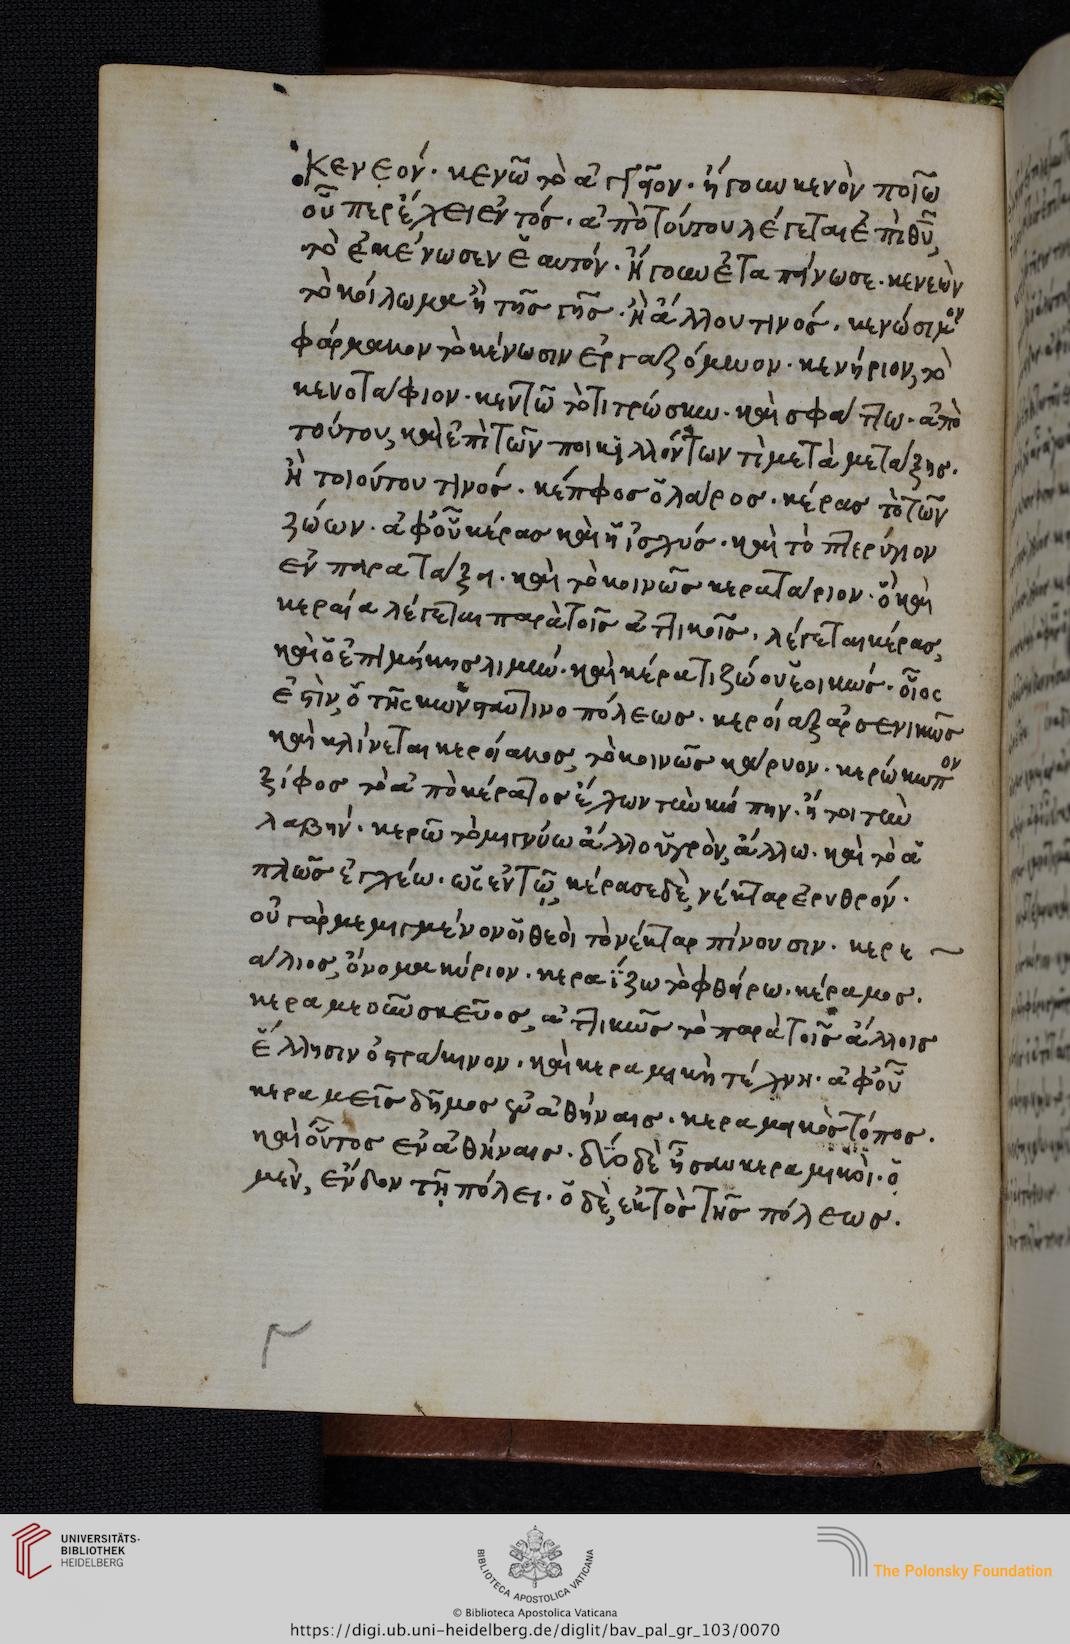 Κενεόν. κενῶ τὸ ἀγγεῖον. ἤγουν κενὸν ποιῶ
οὗπερ ἔχει ἐντός. ἀπὸ τούτου λέγεται ἐπὶ θῦ,
τὸ ἐκένωσεν ἑαυτόν. ἤγουν ἐταπείνωσε. κενεὼν
τὸ κοίλωμα ἢ τῆς γῆς. ἢ ἄλλου τινός. κενώσιμον
φάρμακον τὸ κένωσιν ἐργαζόμενον. κενήριον, τὸ
κενοτάφιον. κεντῶ τὸ τιτρώσκω. καὶ σφάττω. ἀπὸ
τούτου, καὶ ἐπὶ τῶν ποικιλλόντων τὶ μετὰ μετάξης.
ἢ τοιούτου τινός. κέπφος ὁ λάρος. κέρας τὸ τῶν
ζώων. ἀφ' οὗ κέρας καὶ ἡ ἰσχύς. καὶ τὸ πτερύγιον
ἐν παρατάξει. καὶ τὸ κοινῶς κερατάριον. ὃ καὶ
κεραία λέγεται παρὰ τοῖς ἀττικοῖς. λέγεται κέρας,
καὶ ὁ ἐπιμήκης λιμήν. καὶ κέρατι ζώου ἐοικώς. οἷος
ἐστὶν, ὁ τῆς κωνσταντινοπόλεως. κεροίαξ ἀρσενικῶς
καὶ κλίνεται κεροίακος, τὸ κοινῶς κάρυον. κερώκωπον
ξίφος τὸ ἀπὸ κέρατος ἔχων τὴν κώπην. ἤτοι τὴν
λαβήν. κερῶ τὸ μιγνύω ἄλλο ὑγρὸν, ἄλλω. καὶ τὸ ἁ
πλῶς ἐγχέω. ὡς ἐν τῷ, κέρασε δὲ, νέκταρ ἐρυθρόν.
οὐ γὰρ μεμιγμένον οἱ θεοὶ τὸ νέκταρ πίνουσιν. κερε
άλιος, ὄνομα κύριον. κεραΐζω τὸ φθείρω. κέραμος.
κεραμεοῦν σκεῦος, ἀττικῶς τὸ παρὰ τοῖς ἄλλοις
ἕλλησιν ὀστράκινον. καὶ κεραμικὴ τέχνη. ἀφ' οὗ
κεραμεῖς δῆμος ἐν ἀθήναις. κεραμικὸς τόπος.
καὶ οὗτος ἐν ἀθήναις. δύο δὲ ἦσαν κεραμικοὶ. ὁ
μὲν, ἔνδον τῇ πόλει. ὁ δὲ, ἐκτὸς τῆς πόλεως.
UNIVERSITÄTS-
BIBLIOTHEK
HEIDELBERG
BIBLIOTECA APOSTOLICA VATICANA
The Polonsky Foundation
© Biblioteca Apostolica Vaticana
https://digi.ub.uni-heidelberg.de/diglit/bav_pal_gr_103/0070